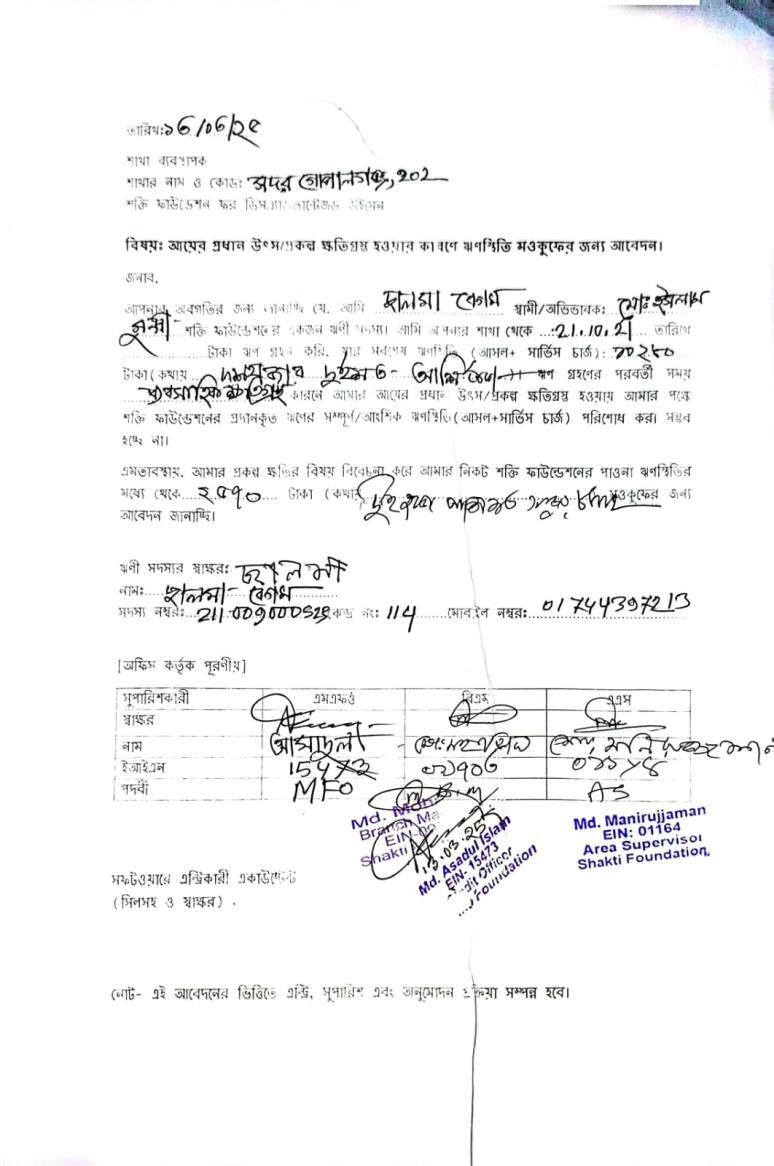 তারিখঃ ১৩/০৩/২৫
শাখা ব্যবস্থাপক
শাখার নাম ও কোডঃ সদর গোপালগঞ্জ, 202
শক্তি ফাউন্ডেশন ফর ডিসএ্যাডভান্টেজড উইমেন
বিষয়ঃ আয়ের প্রধান উৎস/প্রকল্প ক্ষতিগ্রস্থ হওয়ার কারণে ঋণস্থিতি মওকুফের জন্য আবেদন।
জনাব,
আপনার অবগতির জন্য জানাচ্ছি যে, আমি বেগম স্বামী/অভিভাবক: মোঃ ইসলাম
মুন্সী শক্তি ফাউন্ডেশনের একজন ঋণী সদস্য। আমি আপনার শাখা থেকে ...21.10.21... তারিখে
টাকা ঋণ গ্রহন করি, যার সবশেষ ঋণস্থিতি (আসল+ সার্ভিস চার্জ): ১০২৮০
টাকা (কথায় দশ হাজার দুইশত আশি ঋণ গ্রহণের পরবর্তী সময়
ব্যবসায়িক ক্ষতিগ্রস্থ কারনে আমার আয়ের প্রধান উৎস/প্রকল্প ক্ষতিগ্রস্থ হওয়ায় আমার পক্ষে
শক্তি ফাউন্ডেশনের প্রদানকৃত ঋণের সম্পূর্ণ/আংশিক ঋণস্থিতি (আসল+সার্ভিস চার্জ) পরিশোধ করা সম্ভব
হচ্ছে না।
এমতাবস্থায়, আমার প্রকল্প ক্ষতির বিষয় বিবেচনা করে আমার নিকট শক্তি ফাউন্ডেশনের পাওনা ঋণস্থিতির
মধ্যে থেকে...২৫৭০.... টাকা (কথায় দুই হাজার পাঁচশত সত্তুর টাকা মওকুফের জন্য
আবেদন জানাচ্ছি।
ঋণী সদস্যর স্বাক্ষরঃ
নামঃ বেগম
সদস্য নম্বরঃ কেন্দ্র নং: 114 মোবাইল নম্বর: 01744397213
[অফিস কর্তৃক পূরণীয়]
সুপারিশকারী এমএফও বিএম এএস
স্বাক্ষর
নাম আসাদুল
ইআইএন 15473 ০১১৬৪
পদবী MFO BM AS
Branch Ma
EIN-02
Shakti
13.03.25
Md. Asadul Islam
EIN- 15473
Credit Officer
Foundation
Md. Manirujjaman
EIN: 01164
Area Supervisor
Shakti Foundation,
সফটওয়ারে এন্ট্রিকারী একাউন্টেন্ট
(সিলসহ ও স্বাক্ষর) .
নোট- এই আবেদনের ভিত্তিতে এন্ট্রি, সুপারিশ এবং অনুমোদন প্রক্রিয়া সম্পন্ন হবে।